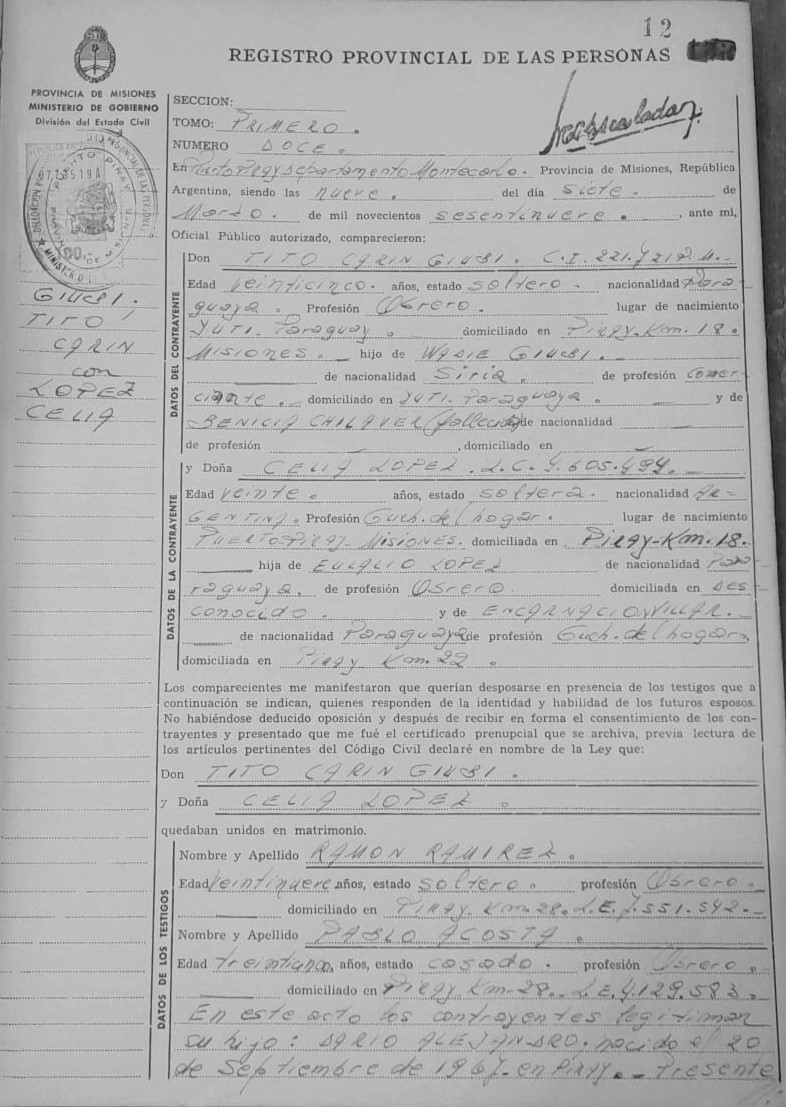 12
REGISTRO PROVINCIAL DE LAS PERSONAS
PROVINCIA DE MISIONES
MINISTERIO DE GOBIERNO
División del Estado Civil
SECCION:
TOMO: PRIMERO.
NUMERO DOCE.
En Puerto Piray departamento Montecarlo. Provincia de Misiones, República
Argentina, siendo las nueve. del día siete. de
Marzo. de mil novecientos sesentinueve. , ante mi,
Oficial Público autorizado, comparecieron:
GIUBI.
TITO
CARIN
con
LOPEZ
CELIA
DATOS DEL CONTRAYENTE
Don TITO CARIN GIUBI. C.I. 221.7212
Edad veinticinco. años, estado soltero. nacionalidad Para
guaya. Profesión Obrero. lugar de nacimiento
YUTI-Paraguay. domiciliado en Piray-Km. 18.
MISIONES. hijo de WADIE GIUBI.
de nacionalidad Siria. de profesión Comer-
ciante. domiciliado en YUTI-Paraguaya. y de
BENICIA CHILAVER (fallecida) de nacionalidad
de profesión , domiciliado en
DATOS DE LA CONTRAYENTE
y Doña CELIA LOPEZ. L.C. 4.605.494.
Edad veinte. años, estado soltera. nacionalidad AR-
GENTINA. Profesión Queh. del hogar. lugar de nacimiento
PUERTO PIRAY-MISIONES. domiciliada en PIRAY-Km. 18.
hija de EULALIO LOPEZ de nacionalidad Pa-
raguaya. de profesión Obrero domiciliada en Des-
conocido. y de ENCARNACION VILLAR.
de nacionalidad Paraguaya de profesión Queh. del hogar,
domiciliada en Piray Km. 22.
Los comparecientes me manifestaron que querían desposarse en presencia de los testigos que a
continuación se indican, quienes responden de la identidad y habilidad de los futuros esposos.
No habiéndose deducido oposición y después de recibir en forma el consentimiento de los con-
trayentes y presentado que me fué el certificado prenupcial que se archiva, previa lectura de
los artículos pertinentes del Código Civil declaré en nombre de la Ley que:
Don TITO CARIN GIUBI.
y Doña CELIA LOPEZ.
quedaban unidos en matrimonio.
DATOS DE LOS TESTIGOS
Nombre y Apellido RAMON RAMIREZ.
Edad veintinueve años, estado soltero. profesión Obrero.
domiciliado en Piray. Km. 28. L.E. 7.551.542.
Nombre y Apellido PABLO ACOSTA.
Edad treintiuno, años, estado casado. profesión Obrero.
domiciliado en Piray Km-28. L.E. 4.129.583.
En este acto los contrayentes legitiman
su hijo: DARIO ALEJANDRO, nacido el 20
de Septiembre de 1967-en Piray. Presente